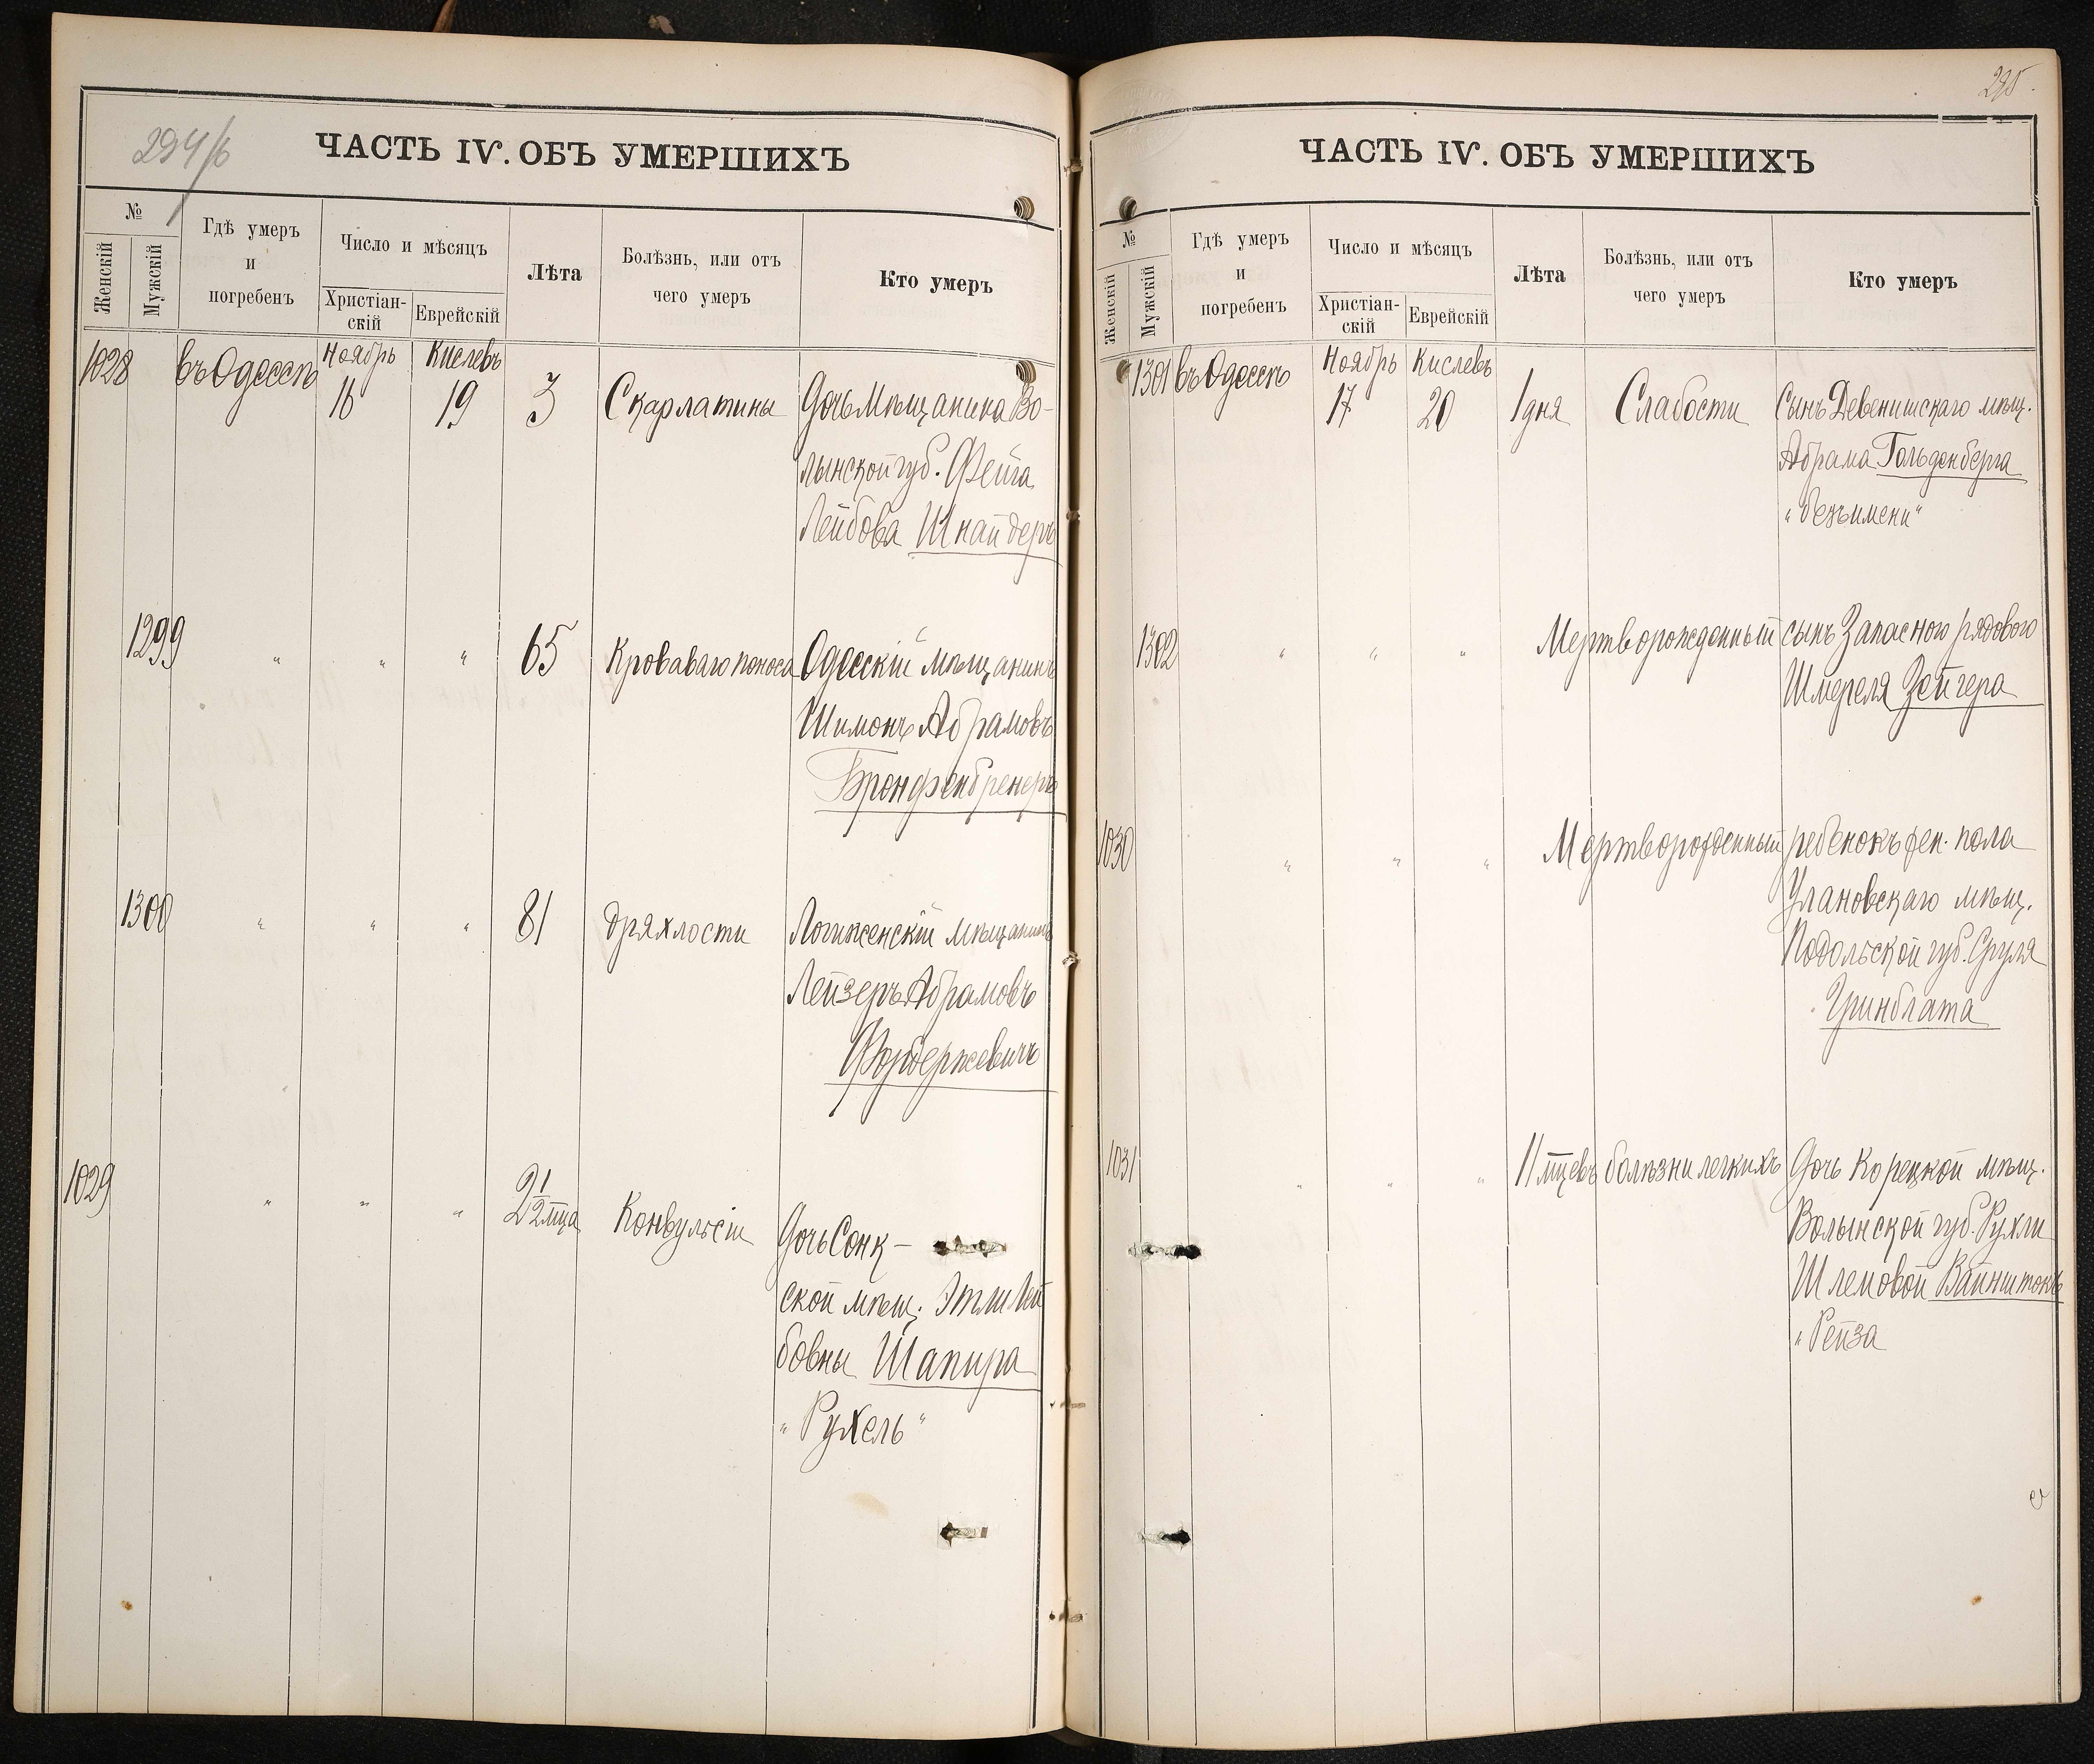 294/б
ЧАСТЬ IV. ОБЪ УМЕРШИХЪ
№
Женскій
Мужскій
Гдѣ умеръ
и
погребенъ
Число и мѣсяцъ
Христіан-
скій
Еврейскій
Лѣта
Болѣзнь, или отъ
чего умеръ
Кто умеръ
1028 въ Одессѣ Ноябрь Кислевъ
16 19 3 Скарлатины Дочь Мѣщанина Во-
лынской губ. Фейга
Лейбова Шнайдеръ
1299 " " " 65 Кроваваго поноса Одесскій мѣщанинъ
Шимонъ Абрамовъ
Бронфенбренеръ
1300 " " " 81 Дряхлости Логиженскій мѣщанинъ
Лейзеръ Абрамовъ
1029 " " " 2 1/2 мца Конвульсіи Дочь Сонк-
ской мѣщ. Этли Лей
бовны Шапира
"Рухель"
295.
ЧАСТЬ IV. ОБЪ УМЕРШИХЪ
№
Женскій
Мужскій
Гдѣ умеръ
и
погребенъ
Число и мѣсяцъ
Христіан-
скій
Еврейскій
Лѣта
Болѣзнь, или отъ
чего умеръ
Кто умеръ
1301 въ Одессѣ Ноябрь Кислевъ
17 20 1 дня Слабости Сынъ Девенишскаго мѣщ.
Абрама Гольденберга
"безъимени"
1302 " " " Мертворожденный сынъ Запасного рядового
Шмереля Зейгера
1030 " " " Мертворожденный ребенокъ жен. пола
Улановскаго мѣщ.
Подольской губ. Сруля
Гринблата
1031 " " " 11 мцевъ болѣзни легкихъ Дочь Корецкой мѣщ.
Волынской губ. Рухли
Шлемовой Вайнштокъ
"Рейза